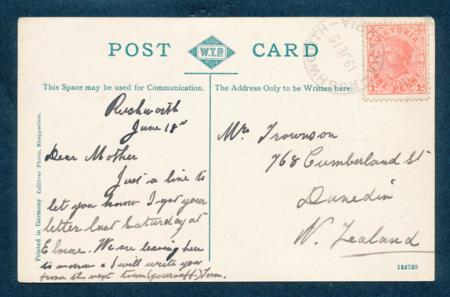 POST W.T.P. CARD
This Space may be used for Communication.
The Address Only to be Written here.
Rushworth
June 18th
Dear Mother
Just a line to
let you know I got your
letter last Saturday at
Elmore. We are leaving here
to morrow & I will write you
from the next town Tom.
Mrs Trownson
768 Cumberland St
Dunedin
N. Zealand
VICTORIA
RUSHWORTH
19 JE 10
Printed in Germany
Photo, Shepparton.
124720